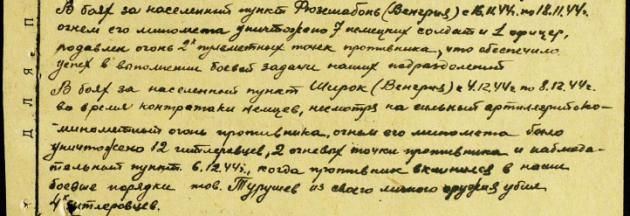 В боях за населенный пункт Фюзешабонь (Венгрия) с 16.11.44г. по 18.11.44г.
огнем его миномета уничтожено 7 немецких солдат и 1 офицер,
подавлен огонь 2х пулеметных точек противника, что обеспечило
успех в выполнении боевой задачи наших подразделений
В боях за населенный пункт Широк (Венгрия) с 4.12.44г. по 8.12.44г.
во время контратаки немцев, несмотря на сильный артиллерийско-
-минометный огонь противника, огнем его миномета было
уничтожено 12 гитлеровцев, 2 огневых точки противника и наблюда-
тельный пункт. 6.12.44г., когда противник вклинился в наши
боевые порядки тов. Турушев из своего личного оружия убил
4х гитлеровцев.
Д Л Я П